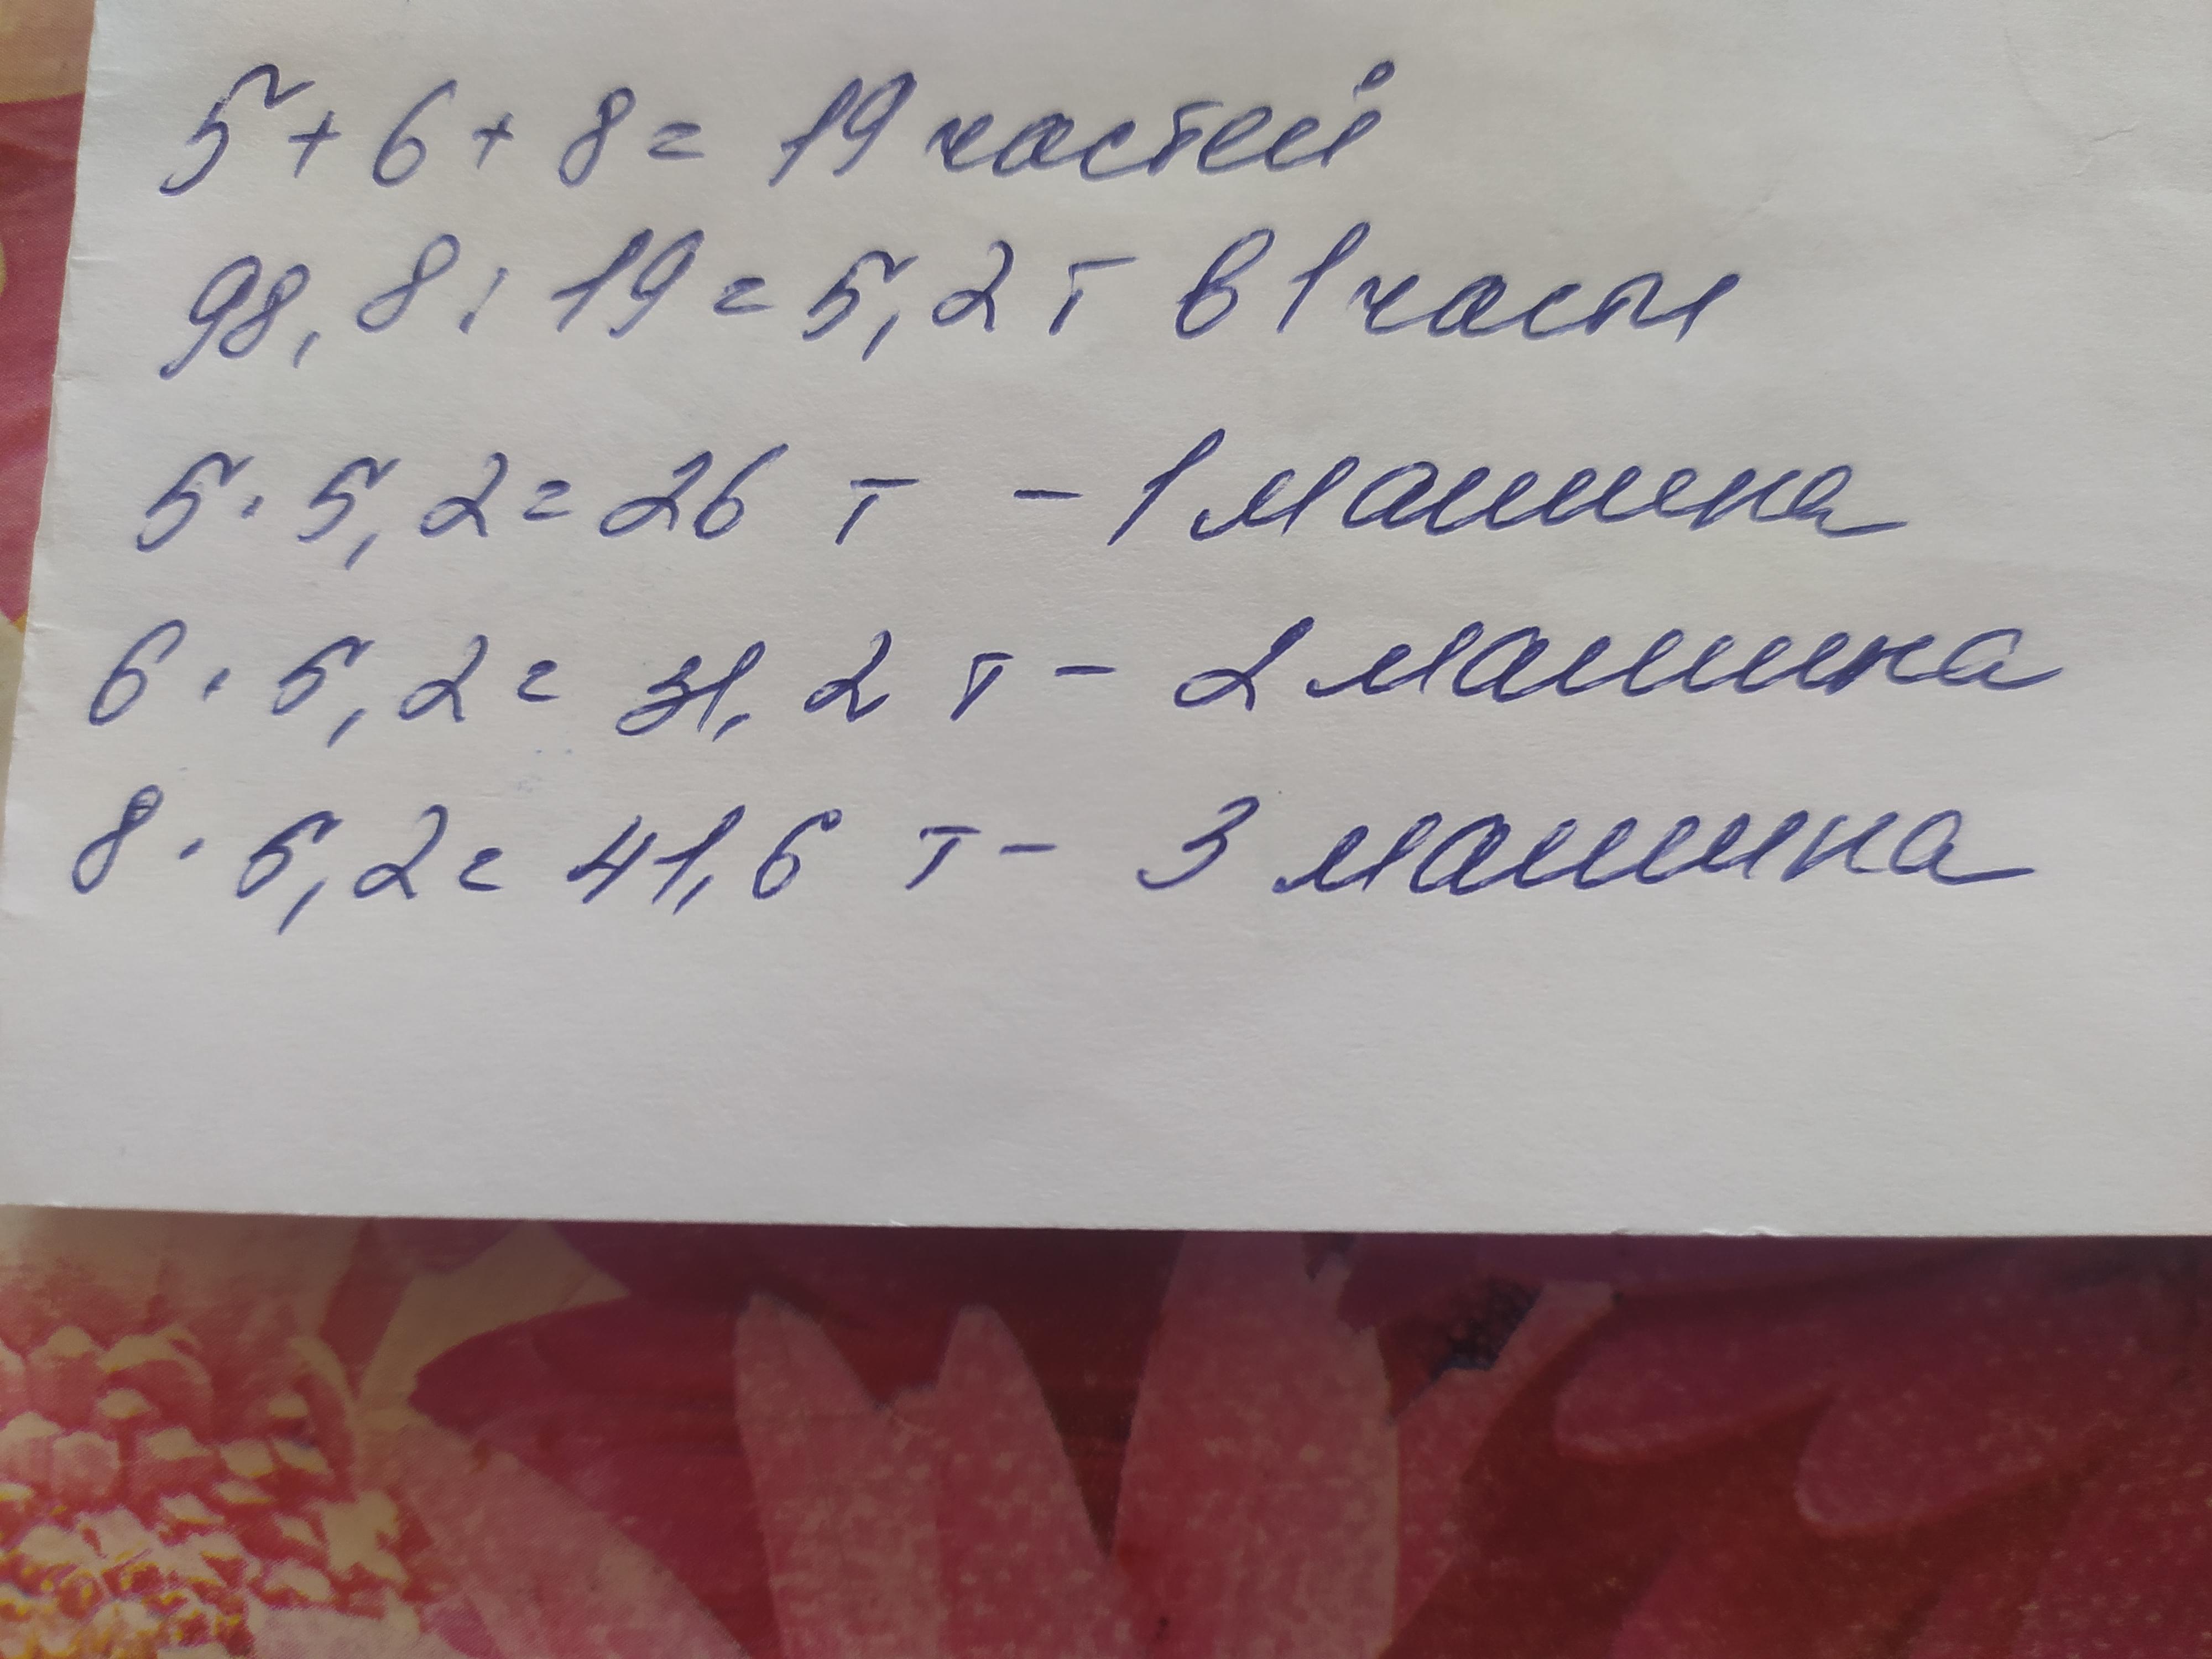 5 + 6 + 8 = 19 частей
98,8 : 19 = 5,2 т в 1 части
5 · 5,2 = 26 т - 1 машина
6 · 5,2 = 31,2 т - 2 машина
8 · 5,2 = 41,6 т - 3 машина